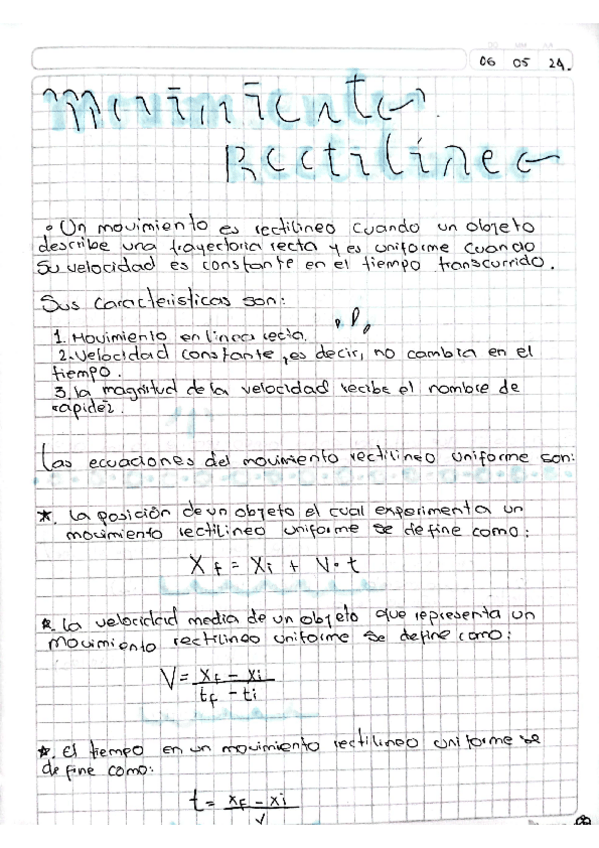 06 05 24.
Movimiento
Rectilineo
• Un movimiento es rectilineo cuando un objeto
describe una trayectoria recta y es uniforme cuando
su velocidad es constante en el tiempo transcurrido.
Sus caracteristicas son:
1. Movimiento en linea recta.
2. Velocidad constante, es decir, no cambia en el
tiempo.
3. la magnitud de la velocidad recibe el nombre de
rapidez.
Las ecuaciones del movimiento rectilineo uniforme son:
*. La posición de un objeto el cual experimenta un
movimiento rectilineo uniforme se define como:
Xf = Xi + V · t
*. La velocidad media de un objeto que representa un
movimiento rectilineo uniforme se define como:
V = xf - xi
tf - ti
*. el tiempo en un movimiento rectilineo uniforme se
define como:
t = xf - xi
V